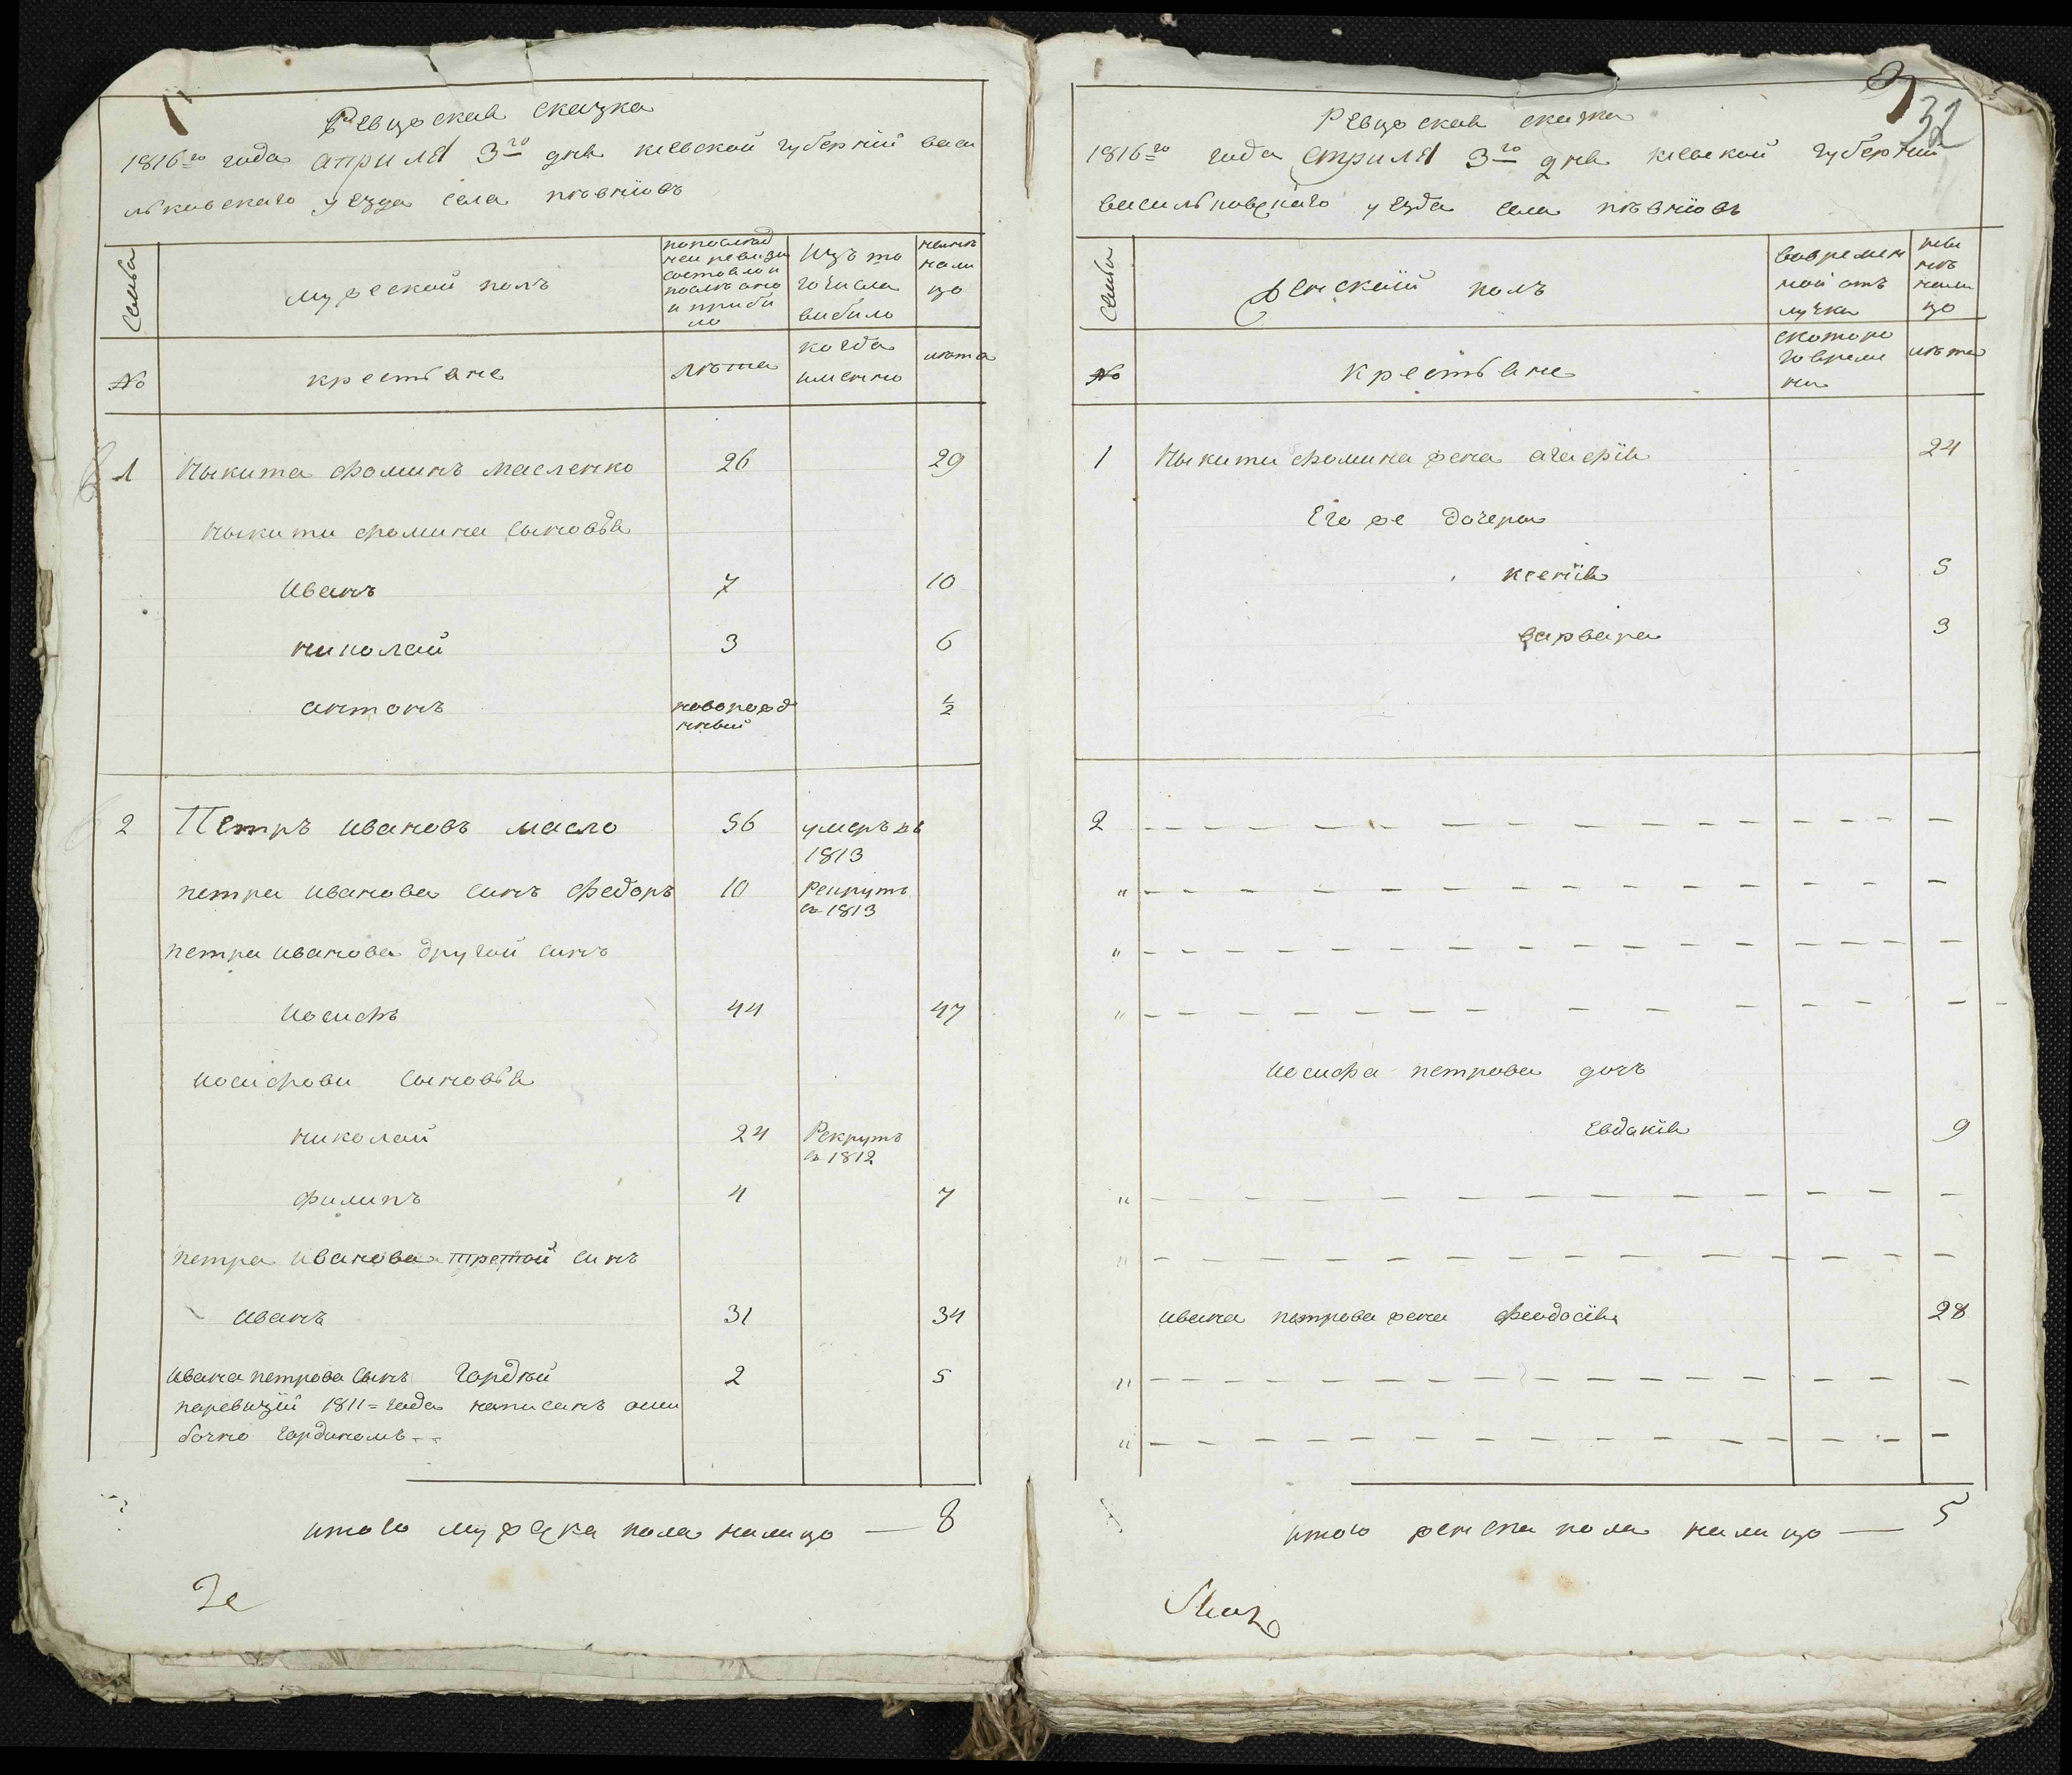 1
Ревизская сказка
1816го года априля 3го дня киевской губернїй васи
льковского уезда села пѣвнїовъ
Семья
мужеской полъ
по послед
ней ревизи
состояло и
после оно
и приби
ло
Изъ то
го числа
вибило
ныннѣ
нали
цо
№
крестьяне
лѣта
когда
именно
лѣта
1 Ныкита фоминъ масленко 26 29
Ныкити фомина сыновья
иванъ 7 10
николай 3 6
антонъ новорожд
нный 1/2
2 Петръ ивановъ масло 56 умеръ въ
1813
петра иванова синъ федоръ 10 рекрутъ
в 1813
петра иванова другой синъ
иосифъ 44 47
иосифови сыновья
николай 24 Рекрутъ
в 1812
филипъ 4 7
петра иванова третой синъ
иванъ 31 34
ивана петрова сынъ гордѣй 2 5
по ревизїй 1811=года написанъ оши
бочно гординомъ--
итого мужеска пола налицо — 8
32
Ревизская сказка
1816го года априля 3го дня киевской губернїй
васильковского уезда села пѣвнїовъ
Семья
женскїй полъ
во времен
ной отъ
лучки
ны
нѣ
нали
цо
№
крестьяне
с которо
го време
ни
лѣта
1 Ныкити фомина жена агафїя 24
Его же дочери
ксенїя 5
варвара 3
2 — — —
" — — —
" — — —
" — — —
иосифа петрова дочь
евдокїя 9
" — — —
" — — —
ивана петрова жена феодосїя 28
" — — —
" — — —
итого женска пола налицо — 5